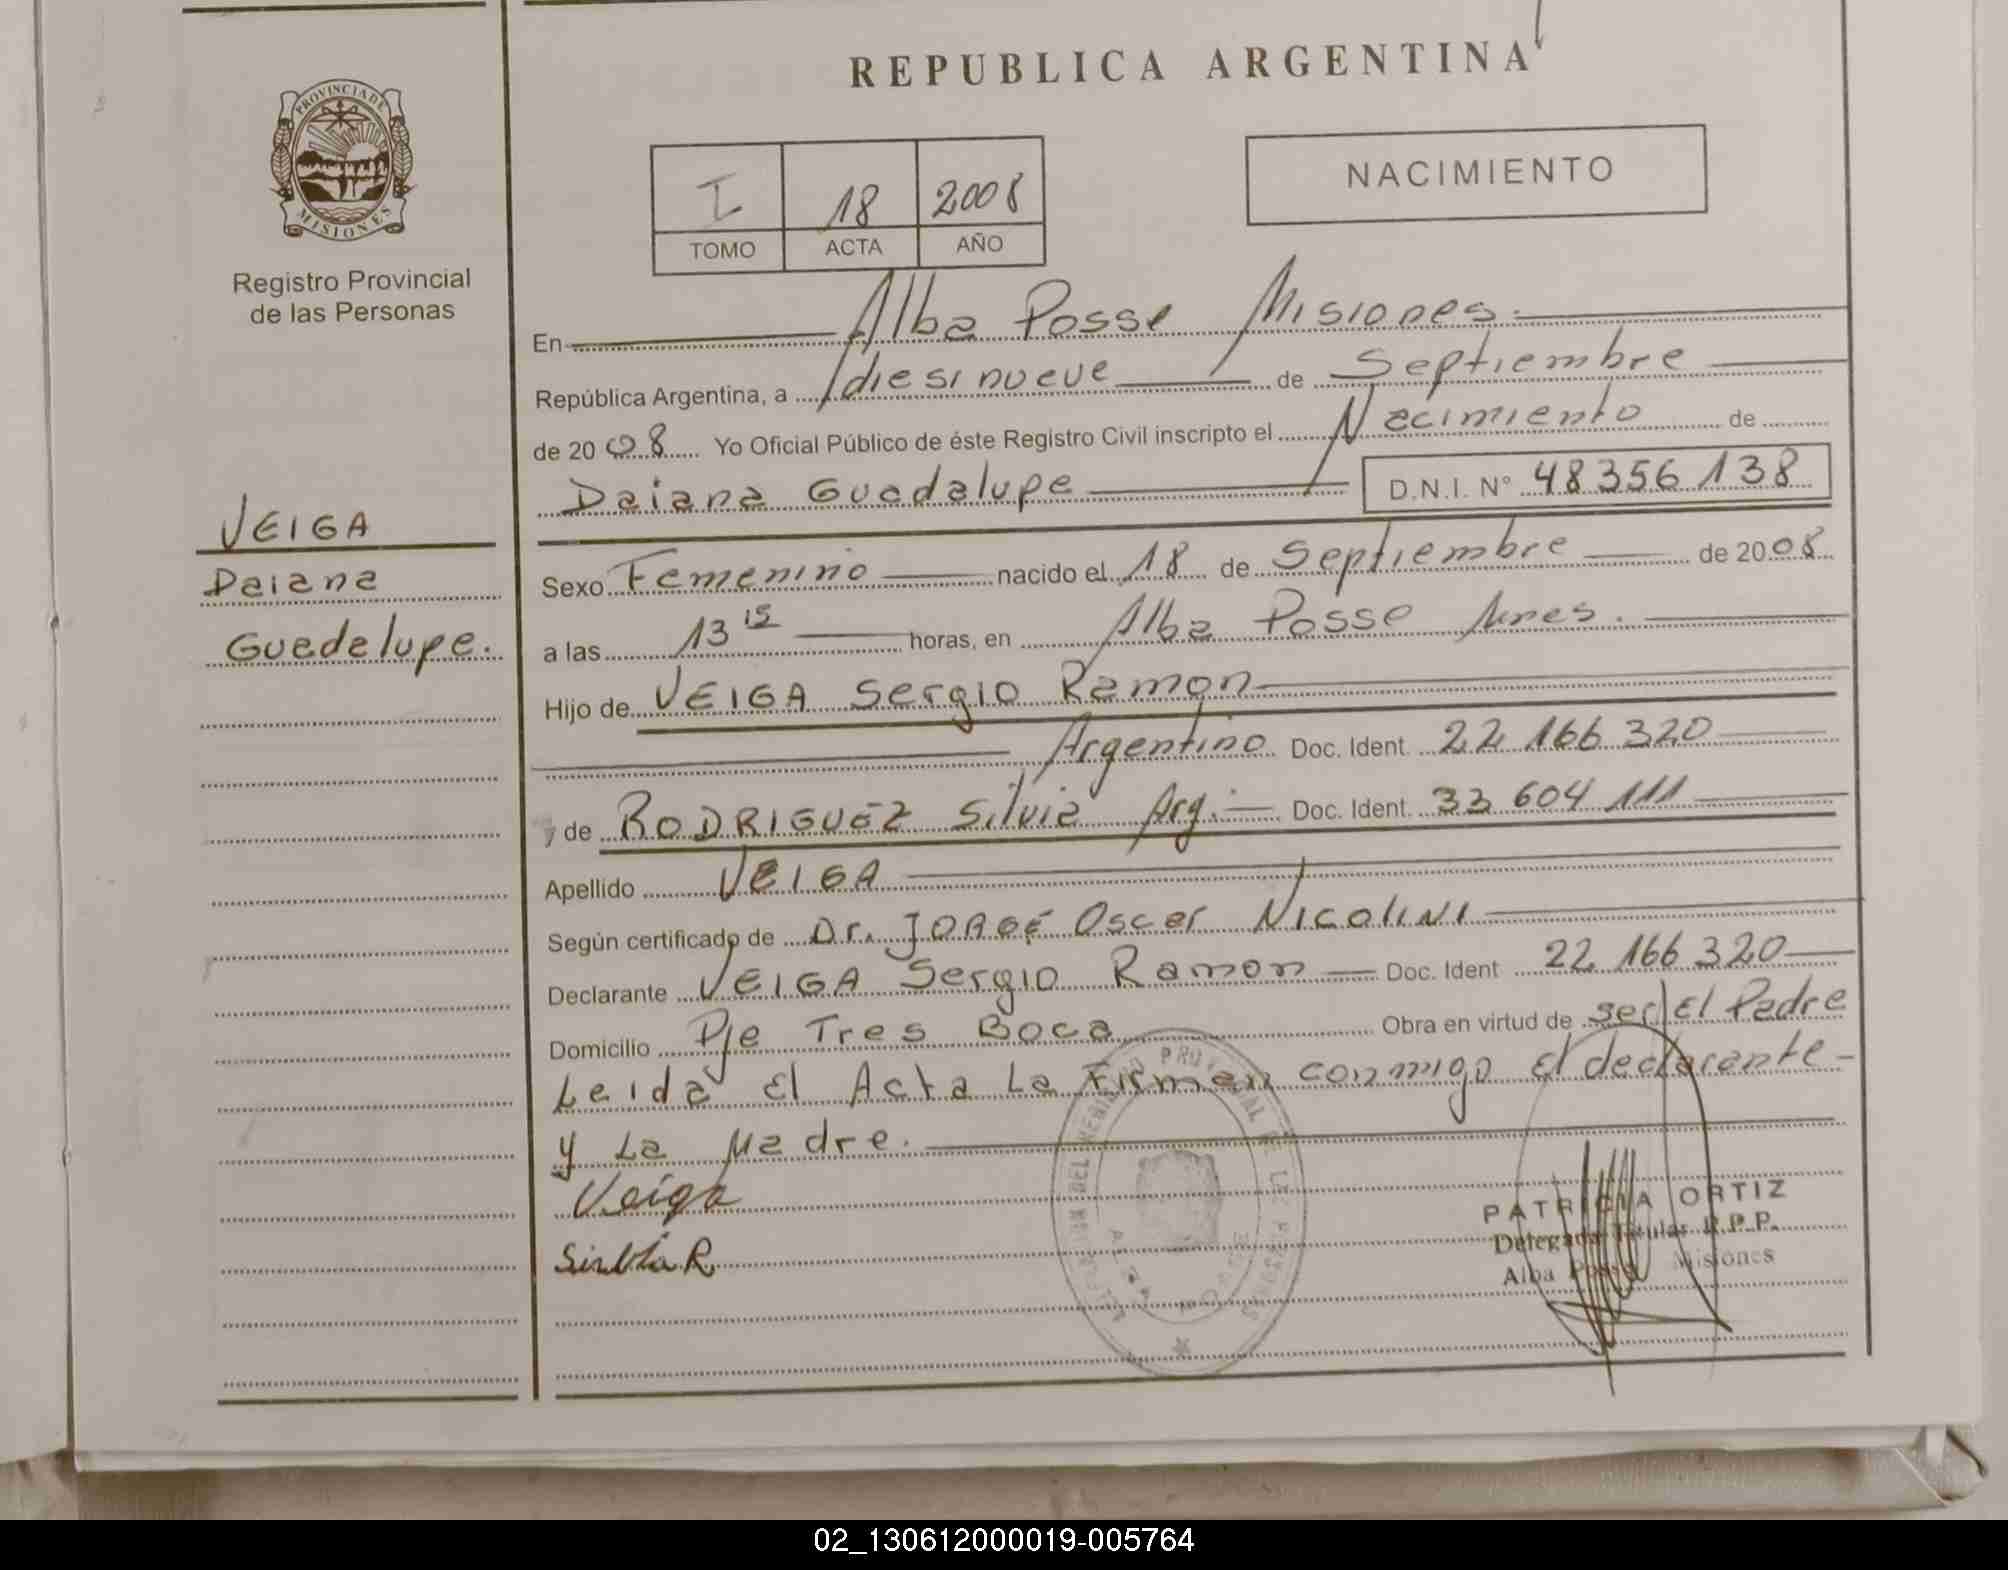 REPUBLICA ARGENTINA
PROVINCIA DE
MISIONES
Registro Provincial
de las Personas
I 18 2008
TOMO ACTA AÑO
NACIMIENTO
En Alba Posse Misiones.
República Argentina, a diesinueve de Septiembre
de 2008 Yo Oficial Público de éste Registro Civil inscripto el Nacimiento de
Daiana Guadalupe D.N.I. N° 48356138
VEIGA
Daiana
Guadalupe.
Sexo Femenino nacido el 18 de Septiembre de 2008
a las 13 15 horas, en Alba Posse Mnes.
Hijo de VEIGA Sergio Ramon
Argentino Doc. Ident. 22 166 320
y de RODRIGUEZ Silvia Arg. Doc. Ident. 33 604 111
Apellido VEIGA
Según certificado de Dr. JORGE Oscar Nicolini
Declarante VEIGA Sergio Ramon Doc. Ident 22 166 320
Domicilio Pje Tres Boca Obra en virtud de ser El Padre
Leida El Acta La Firman conmigo El declarante
y La Madre.
Veiga
PATRICIA ORTIZ
Delegada Titular R.P.P.
Alba Posse Misiones
02_130612000019-005764